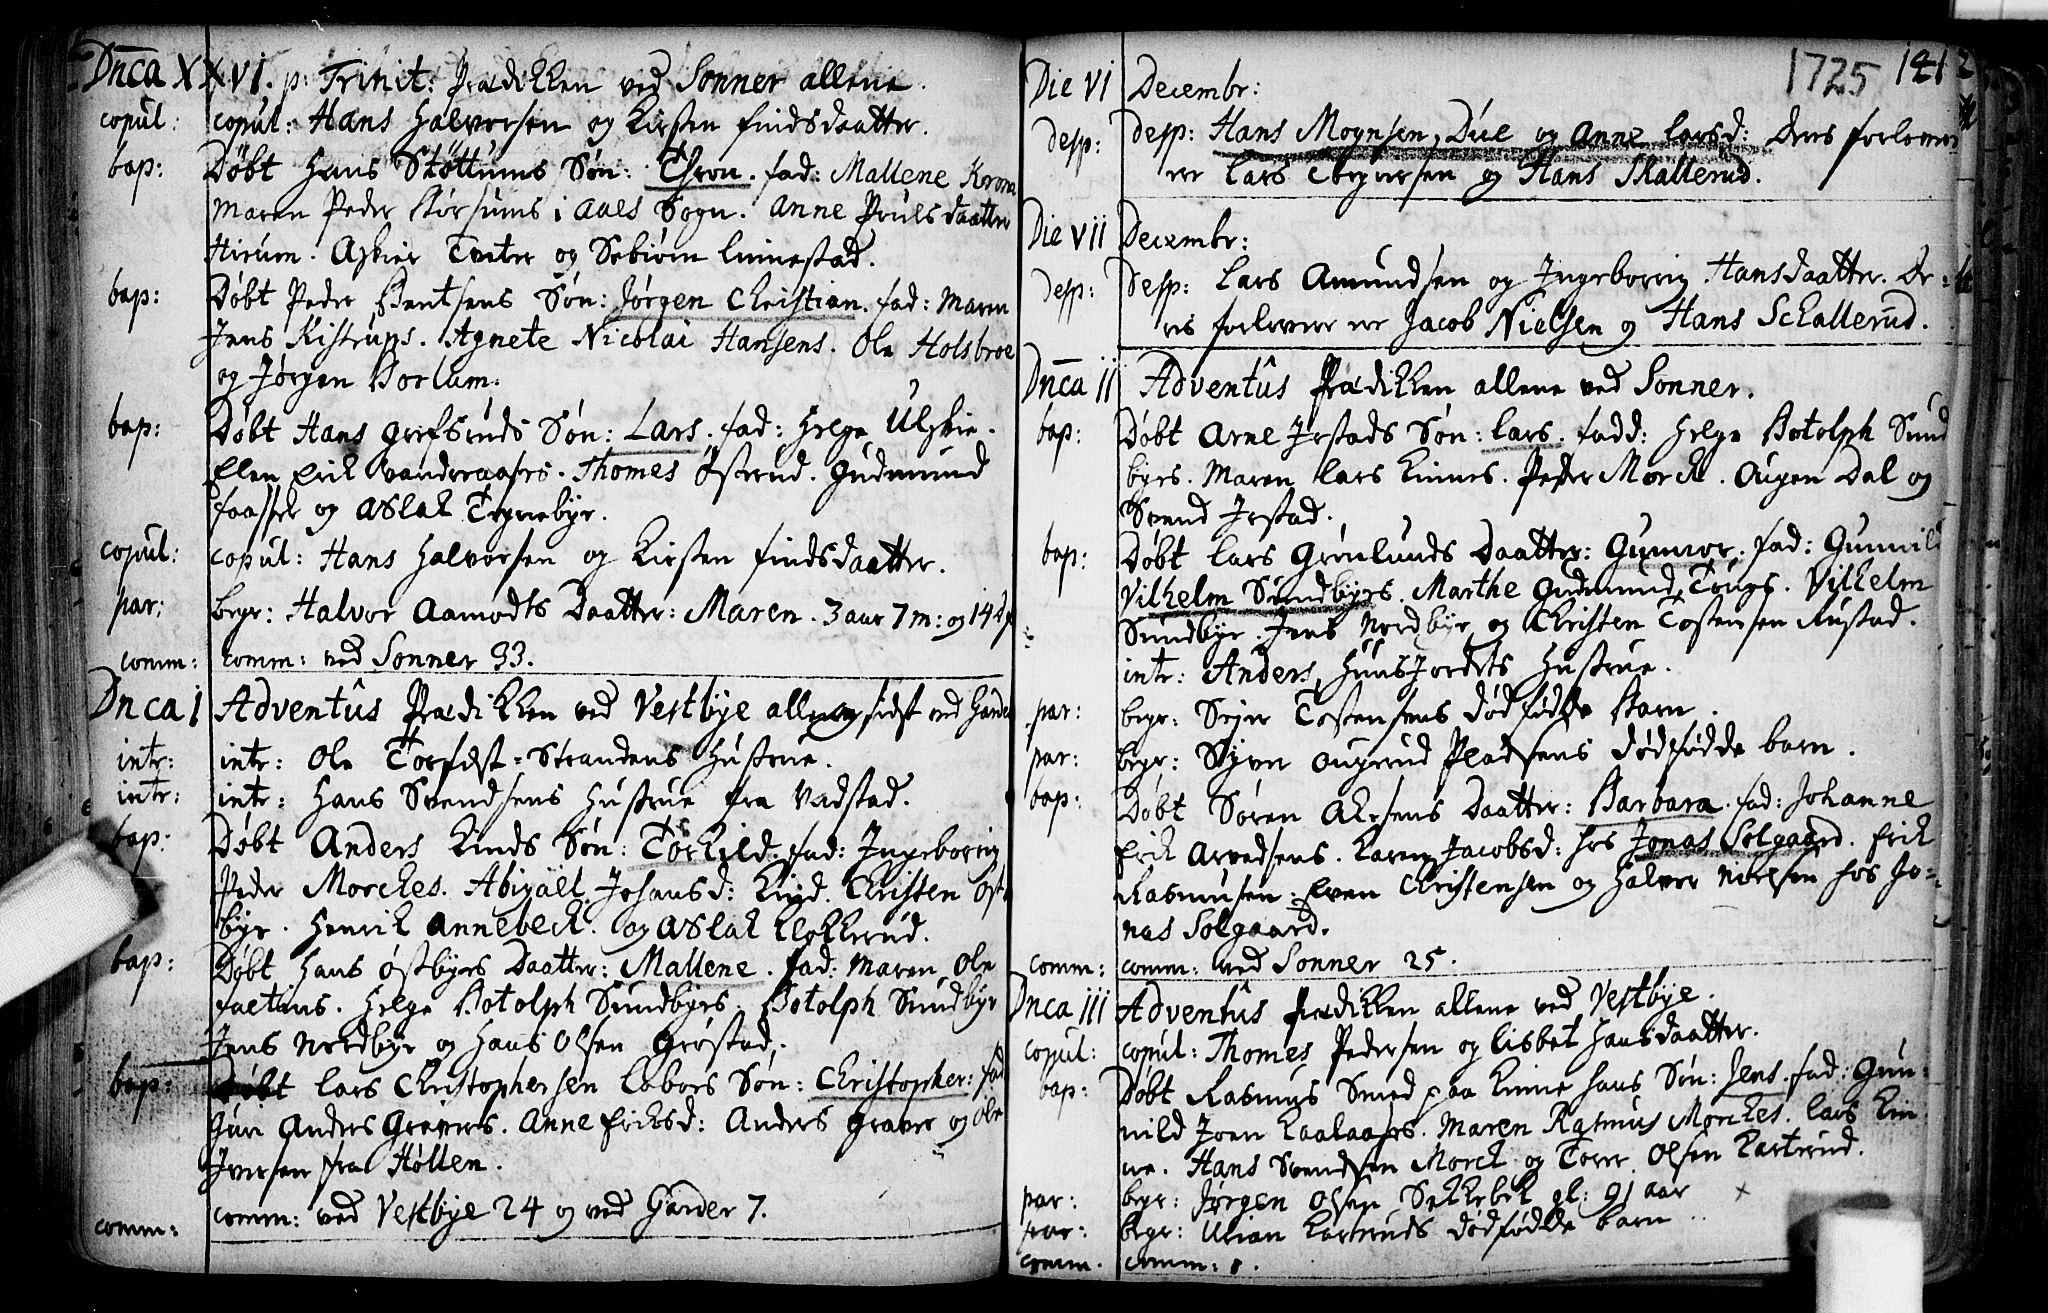 Dnca XXVI. p: Trinit: Prædikken ved Sonner allene.
copul: copul: Hans Halvorsen og Kirsten findsdaatter.
bap: Døbt Hans Støttums Søn: Thron. fad: Mallene Korom
Maren Peder Korsums i Aaes Sogn. Anne Poulsdaatter
Hirum. Askier Tveter og Sebiørn Linnestad.
bap: Døbt Peder Bentsens Søn: Jørgen Christian. fad: Maren
Jens Ristrups. Agnete Nicolai Hansens. Ole Holsbroe
og Jørgen Borlum.
bap: Døbt Hans grefsruds Søn: Lars. fad: Helge Ulskie.
Ellen Erik Vanderaasers. Thomes Østerud. Gudmund
Faasser og Aslak Tegnebyr.
copul: copul: Hans Halvorsen og Kirsten findsdaatter.
par: begr: Halvor Aamodts Daatter: Maren. 3 aar 7 m: og 14 d
comm: comm: ved Sonner 33.
Dnca I Adventûs Prædikken ved Vestbye allene og sidst ved Garder
intr: intr: Ole Torfest-Strandens Hustrue.
intr: intr: Hans Svendsens Hustrue fra Vadstad.
bap: Døbt Anders Kinds Søn: Torkild. fad: Ingeborrig
Peder Morckes. Abigäel Johansd: Kind. Christen Øst
byr. Henrik Annebeck. og Aslak Klokkerud.
bap: Døbt Hans Østbyes Daatter: Mallene. fad: Maren Ole
faetens. Helge Botolph Sundbyes. Botolph Sundbye
Jens Nordbye og Hans Olsen Grøstad.
bap: Døbt Lars Christophersen Labors Søn: Christopher: fad
Guri Anders Gravers. Anne Eriksd: Anders Graver og Ole
Iversen fra Høllen.
comm: comm: ved Vestbye 24 og ved Garder 7.
1725 1412
Die VI Decembr:
desp: desp: Hans Mognsen Due og Anne Larsd: Deres forlover
er Lars Torgersen og Hans Skallerud.
Die VII Decembr:
desp: desp: Lars Amundsen og Ingeborrig Hansdaatter. De-
res forlovere er Jacob Nielsen og Hans Schallerud.
Dnca II Adventûs Prædikken allene ved Sonner.
bap: Døbt Arne Irstads Søn: Lars. fadd: Helge Botolph Sund
byes. Maren Lars Kinnes. Peder Morck. Ougen Dal og
Svend Irstad.
bap: Døbt Lars Grønlunds Daatter: Gunnor. fad: Gunvild
Vilhelm Sundbyes. Marthe Gudmund Tougs. Vilhelm
Sundbye. Jens Nordbye og Christen Tostensen Rustad.
intr: Anders Huusjordets Hustrue.
par: begr: Sejer Tostensens dødfødde Barn.
par: begr: Syver ougerud Pladsens dødfødde barn.
bap: Døbt Søren Akesens Daatter: Barbara. fad: Johanne
Erik Arvedsens. Karen Jacobsd: hos Jonas Solgaard. Erik
Rasmusen. Even Christensen og Halvor Nielsen hos Jo-
nas Solgaard.
comm: comm: ved Sonner 25.
Dnca III Adventûs Prædikken allene ved Vestbye.
copul: copul: Thomes Pedersen og Lisbet Hansdaatter.
bap: Døbt Rasmus Smed paa Kinne hans Søn: Jens. fad: Gun-
nild Joen Kaalaasrs. Maren Rasmus Morckes. Lars Kin
ne. Hans Svendsen Morck og Torer Olsen Karterud.
par: begr: Jørgen Olsen Sekkebek gl: 91 aar x
par: begr: Urian Karteruds dødfødde barn
comm. comm: